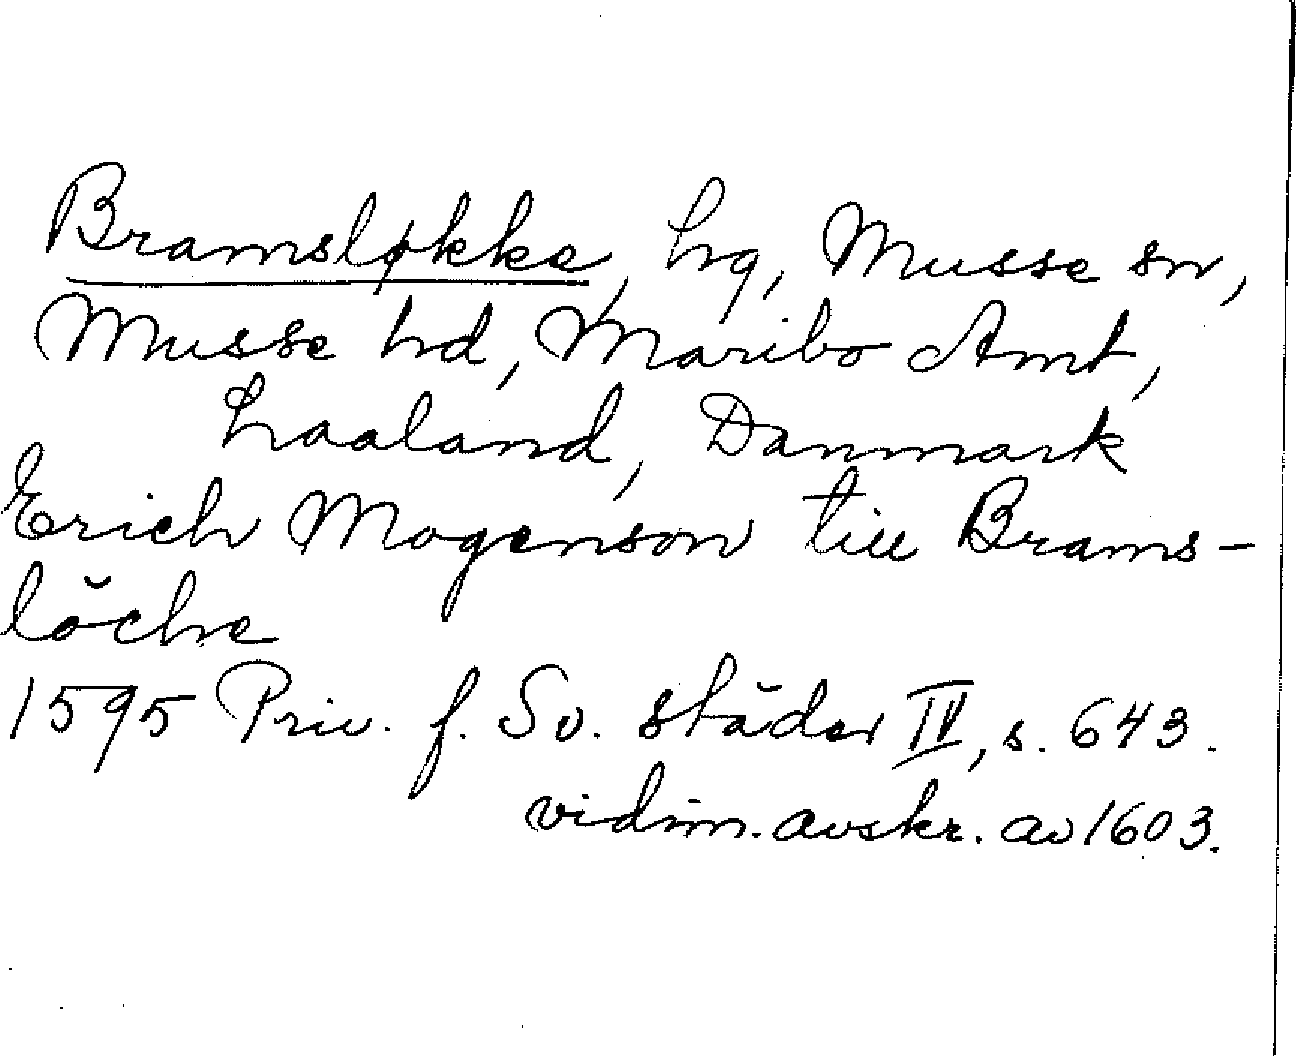 Bramsløkke, hg, Musse sn,
Musse hd, Maribo Amt,
Laaland, Danmark
Erich Mogenson till Brams-
löche
1595 Priv. f. Sv. städer IV, s. 643.
vidim. avskr. av 1603.